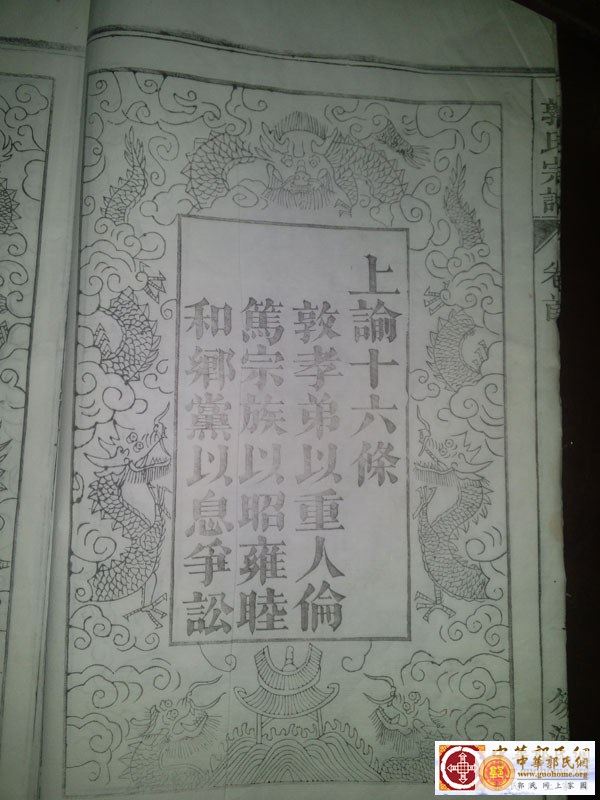 上諭十六條
敦孝弟以重人倫
篤宗族以昭雍睦
和鄉黨以息爭訟
郭氏宗譜
卷首
中華郭氏網
www.guohome.org
郭氏网上家園